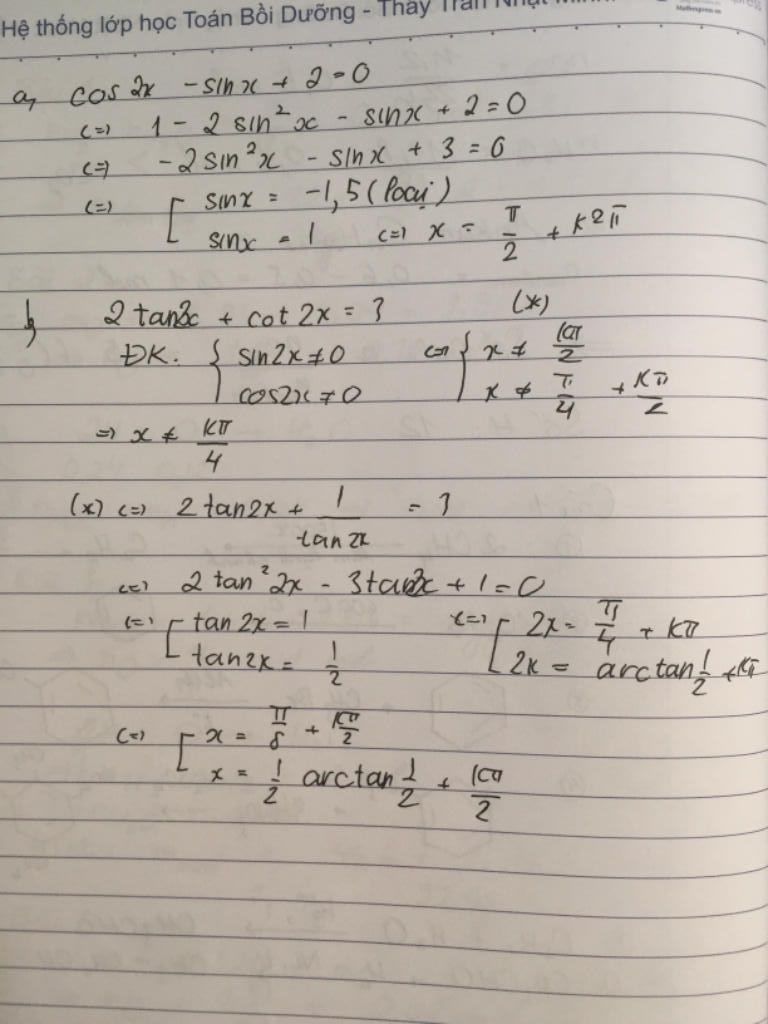 Hệ thống lớp học Toán Bồi Dưỡng - Thầy Trần Nhật Minh
a, cos 2x - sin x + 2 = 0
(=) 1 - 2 sin²x - sin x + 2 = 0
(=) -2 sin²x - sin x + 3 = 0
(=) [ sin x = -1,5 (loại)
sin x = 1 (=) x = π/2 + k2π
b, 2 tan2x + cot 2x = 3 (*)
ĐK: { sin2x ≠ 0 (=) { x ≠ kπ/2
cos2x ≠ 0 x ≠ π/4 + kπ/2
=) x ≠ kπ/4
(*) (=) 2 tan2x + 1/tan2x = 3
(=) 2 tan²2x - 3tan2x + 1 = 0
(=) [ tan 2x = 1 (=) [ 2x = π/4 + kπ
tan2x = 1/2 2x = arctan 1/2 + kπ
(=) [ x = π/8 + kπ/2
x = 1/2 arctan 1/2 + kπ/2